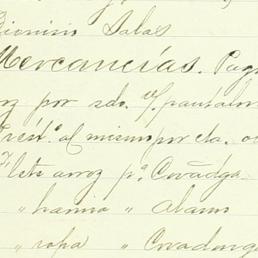 Dionisio Salas
Mercancías. Pag
por sdo. c/ pantalon
Prést.o al mismo por cta.
Flete arroz p.a Covadga.
" harina " Alamo
" ropa " Covadonga